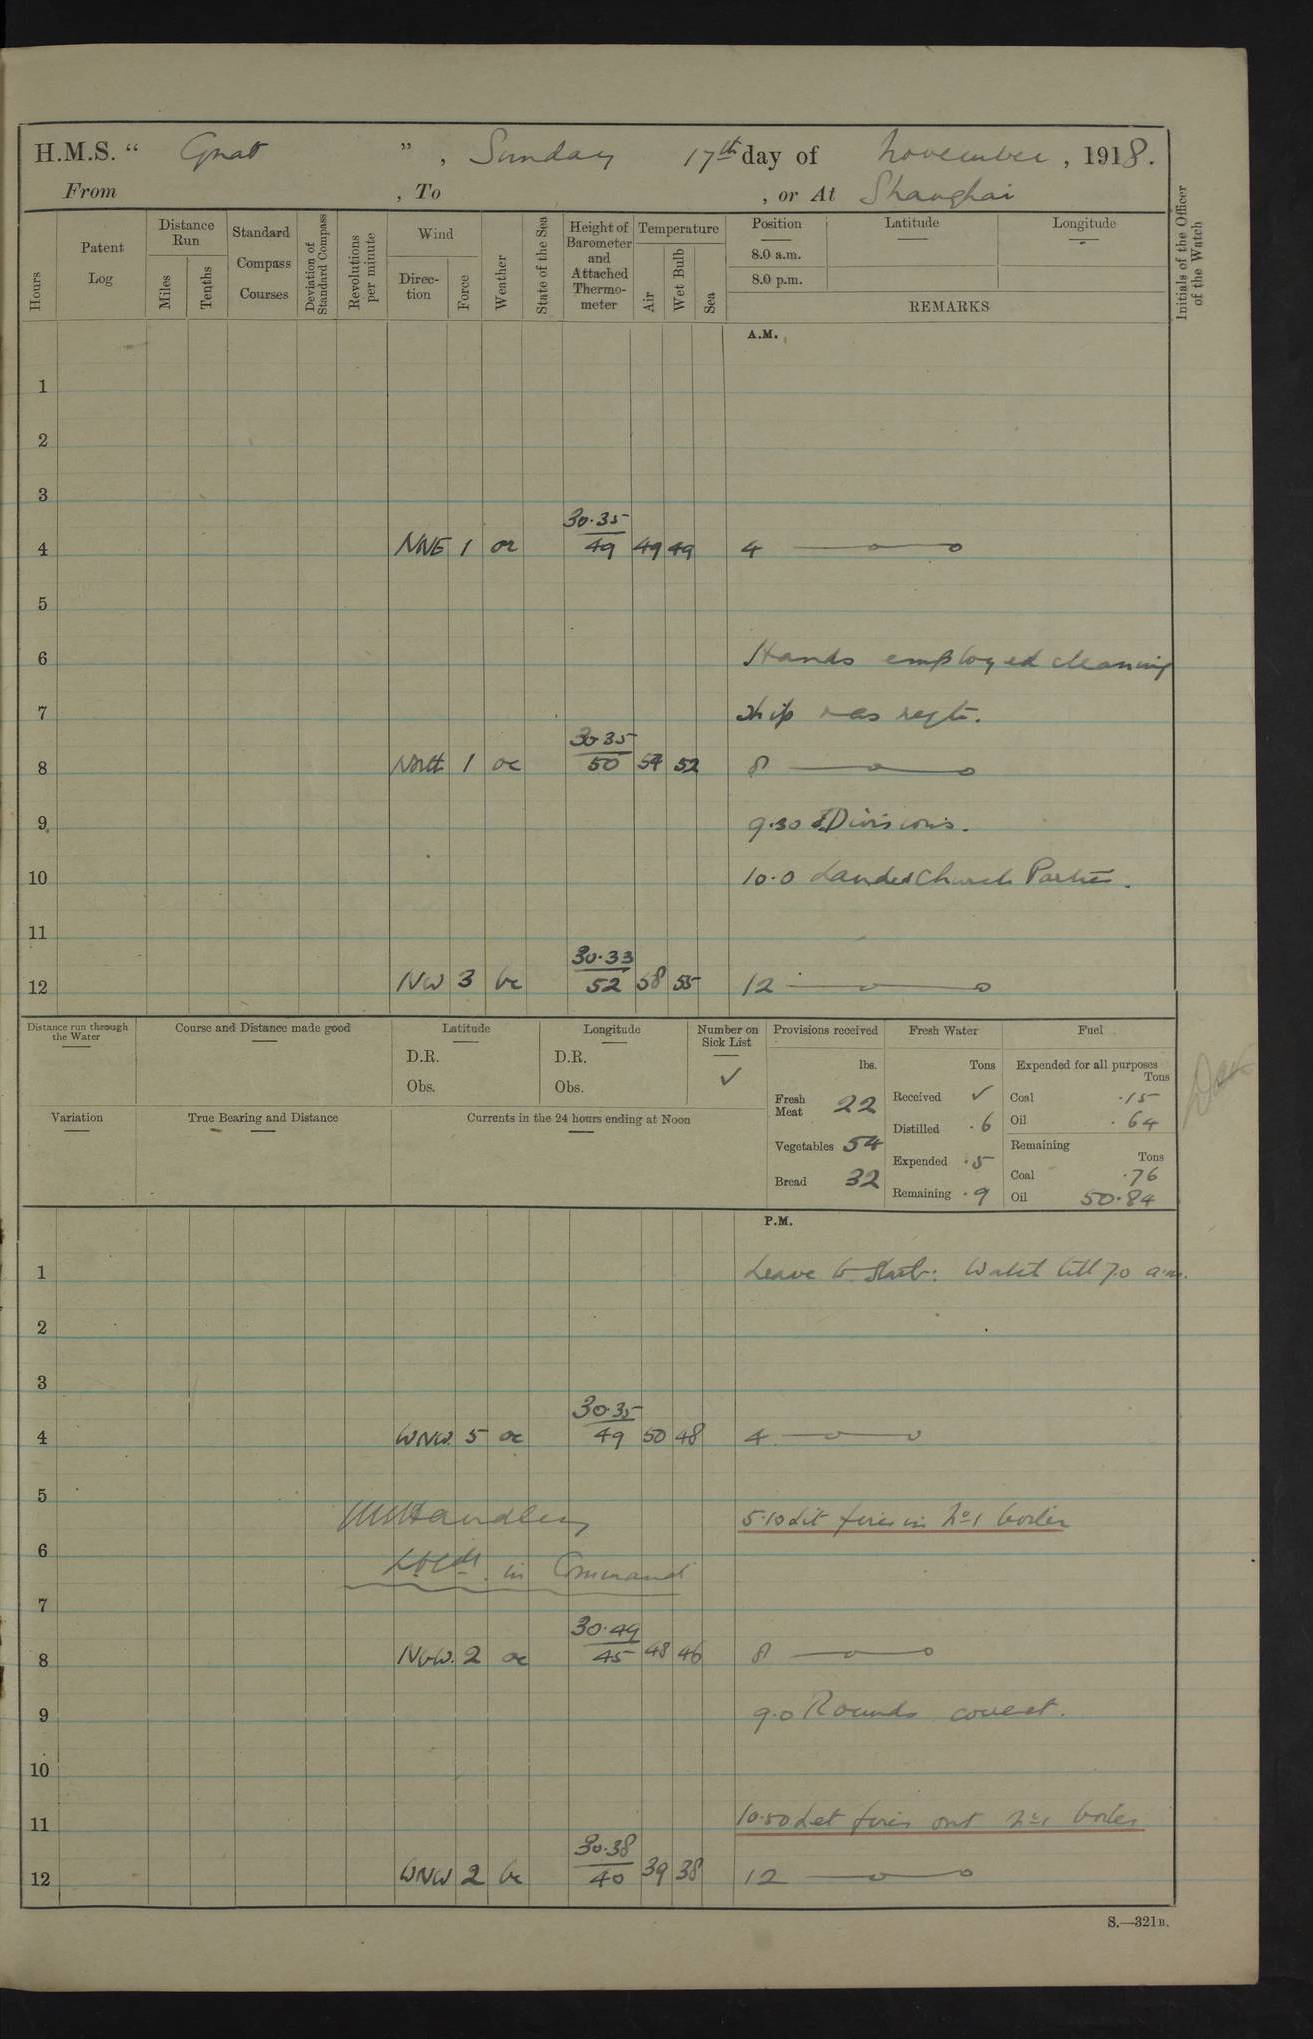 H.M.S. “ Gnat ” , Sunday 17th day of November , 1918.
From , To , or At Shanghai
Hours
Patent Log
Distance Run
Miles
Tenths
Standard Compass Courses
Deviation of Standard Compass
Revolutions per minute
Wind
Direction
Force
Weather
State of the Sea
Height of Barometer and Attached Thermometer
Temperature
Air
Wet Bulb
Sea
Position
Latitude
Longitude
8.0 a.m.
8.0 p.m.
REMARKS
Initials of the Officer of the Watch
A.M.
1
2
3
30.35
4 NNE 1 49 49 49 4
5
6 Hands employed cleaning
7 ship as reqte.
30.35
8 North 1 oc 50 54 52 8
9 9.30 Divisions.
10 10.0 Landed Church Parties.
11
30.33
12 NW 3 bc 52 58 55 12
Distance run through the Water
Course and Distance made good
Latitude
D.R.
Obs.
Longitude
D.R.
Obs.
Number on Sick List
✓
Variation
True Bearing and Distance
Currents in the 24 hours ending at Noon
Provisions received
lbs.
Fresh Meat 22
Vegetables 54
Bread 32
Fresh Water
Tons
Received ✓
Distilled .6
Expended .5
Remaining .9
Fuel
Expended for all purposes
Tons
Coal .15
Oil .64
Remaining
Tons
Coal .76
Oil 50.84
P.M.
1 Leave to Starb: Watch till 7.0 a.m.
2
3
30.35
4 WNW. 5 oc 49 50 48 4
5 5.10 Lit fires in No 1 boiler
6 in Command
7
30.49
8 NbW. 2 oc 45 48 46 8
9 9.0 Rounds correct.
10
11 10.50 Let fires out No 1 boiler
30.38
12 WNW 2 bc 40 39 38 12
S.—321B.